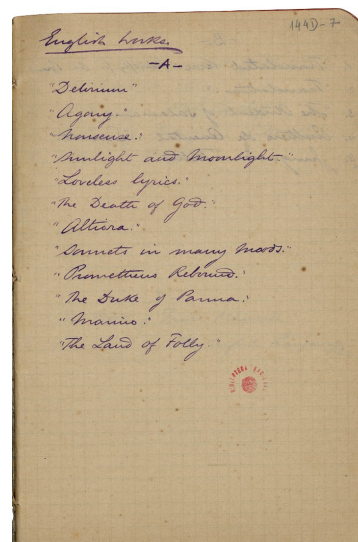 144D-7
English Works.
-A-
"Delirium"
"Agony."
"Nonsense."
"Sunlight and Moonlight."
"Loveless lyrics."
"The Death of God."
"Altiora."
"Sonnets in many Moods."
"Prometheus Rebound."
"The Duke of Parma."
"Marino."
"The Land of Folly."